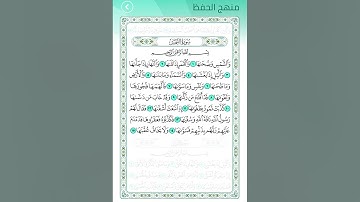 منهج الحفظ
سورة الشمس
بسم الله الرحمن الرحيم
والشمس وضحاها ١ والقمر إذا تلاها ٢ والنهار إذا جلاها
٣ والليل إذا يغشاها ٤ والسماء وما بناها ٥ والأرض
وما طحاها ٦ ونفس وما سواها ٧ فألهمها فجورها
وتقواها ٨ قد أفلح من زكاها ٩ وقد خاب من دساها
١٠ كذبت ثمود بطغواها ١١ إذ انبعث أشقاها ١٢ فقال لهم
رسول الله ناقة الله وسقياها ١٣ فكذبوه فعقروها فدمدم
عليهم ربهم بذنبهم فسواها ١٤ ولا يخاف عقباها ١٥